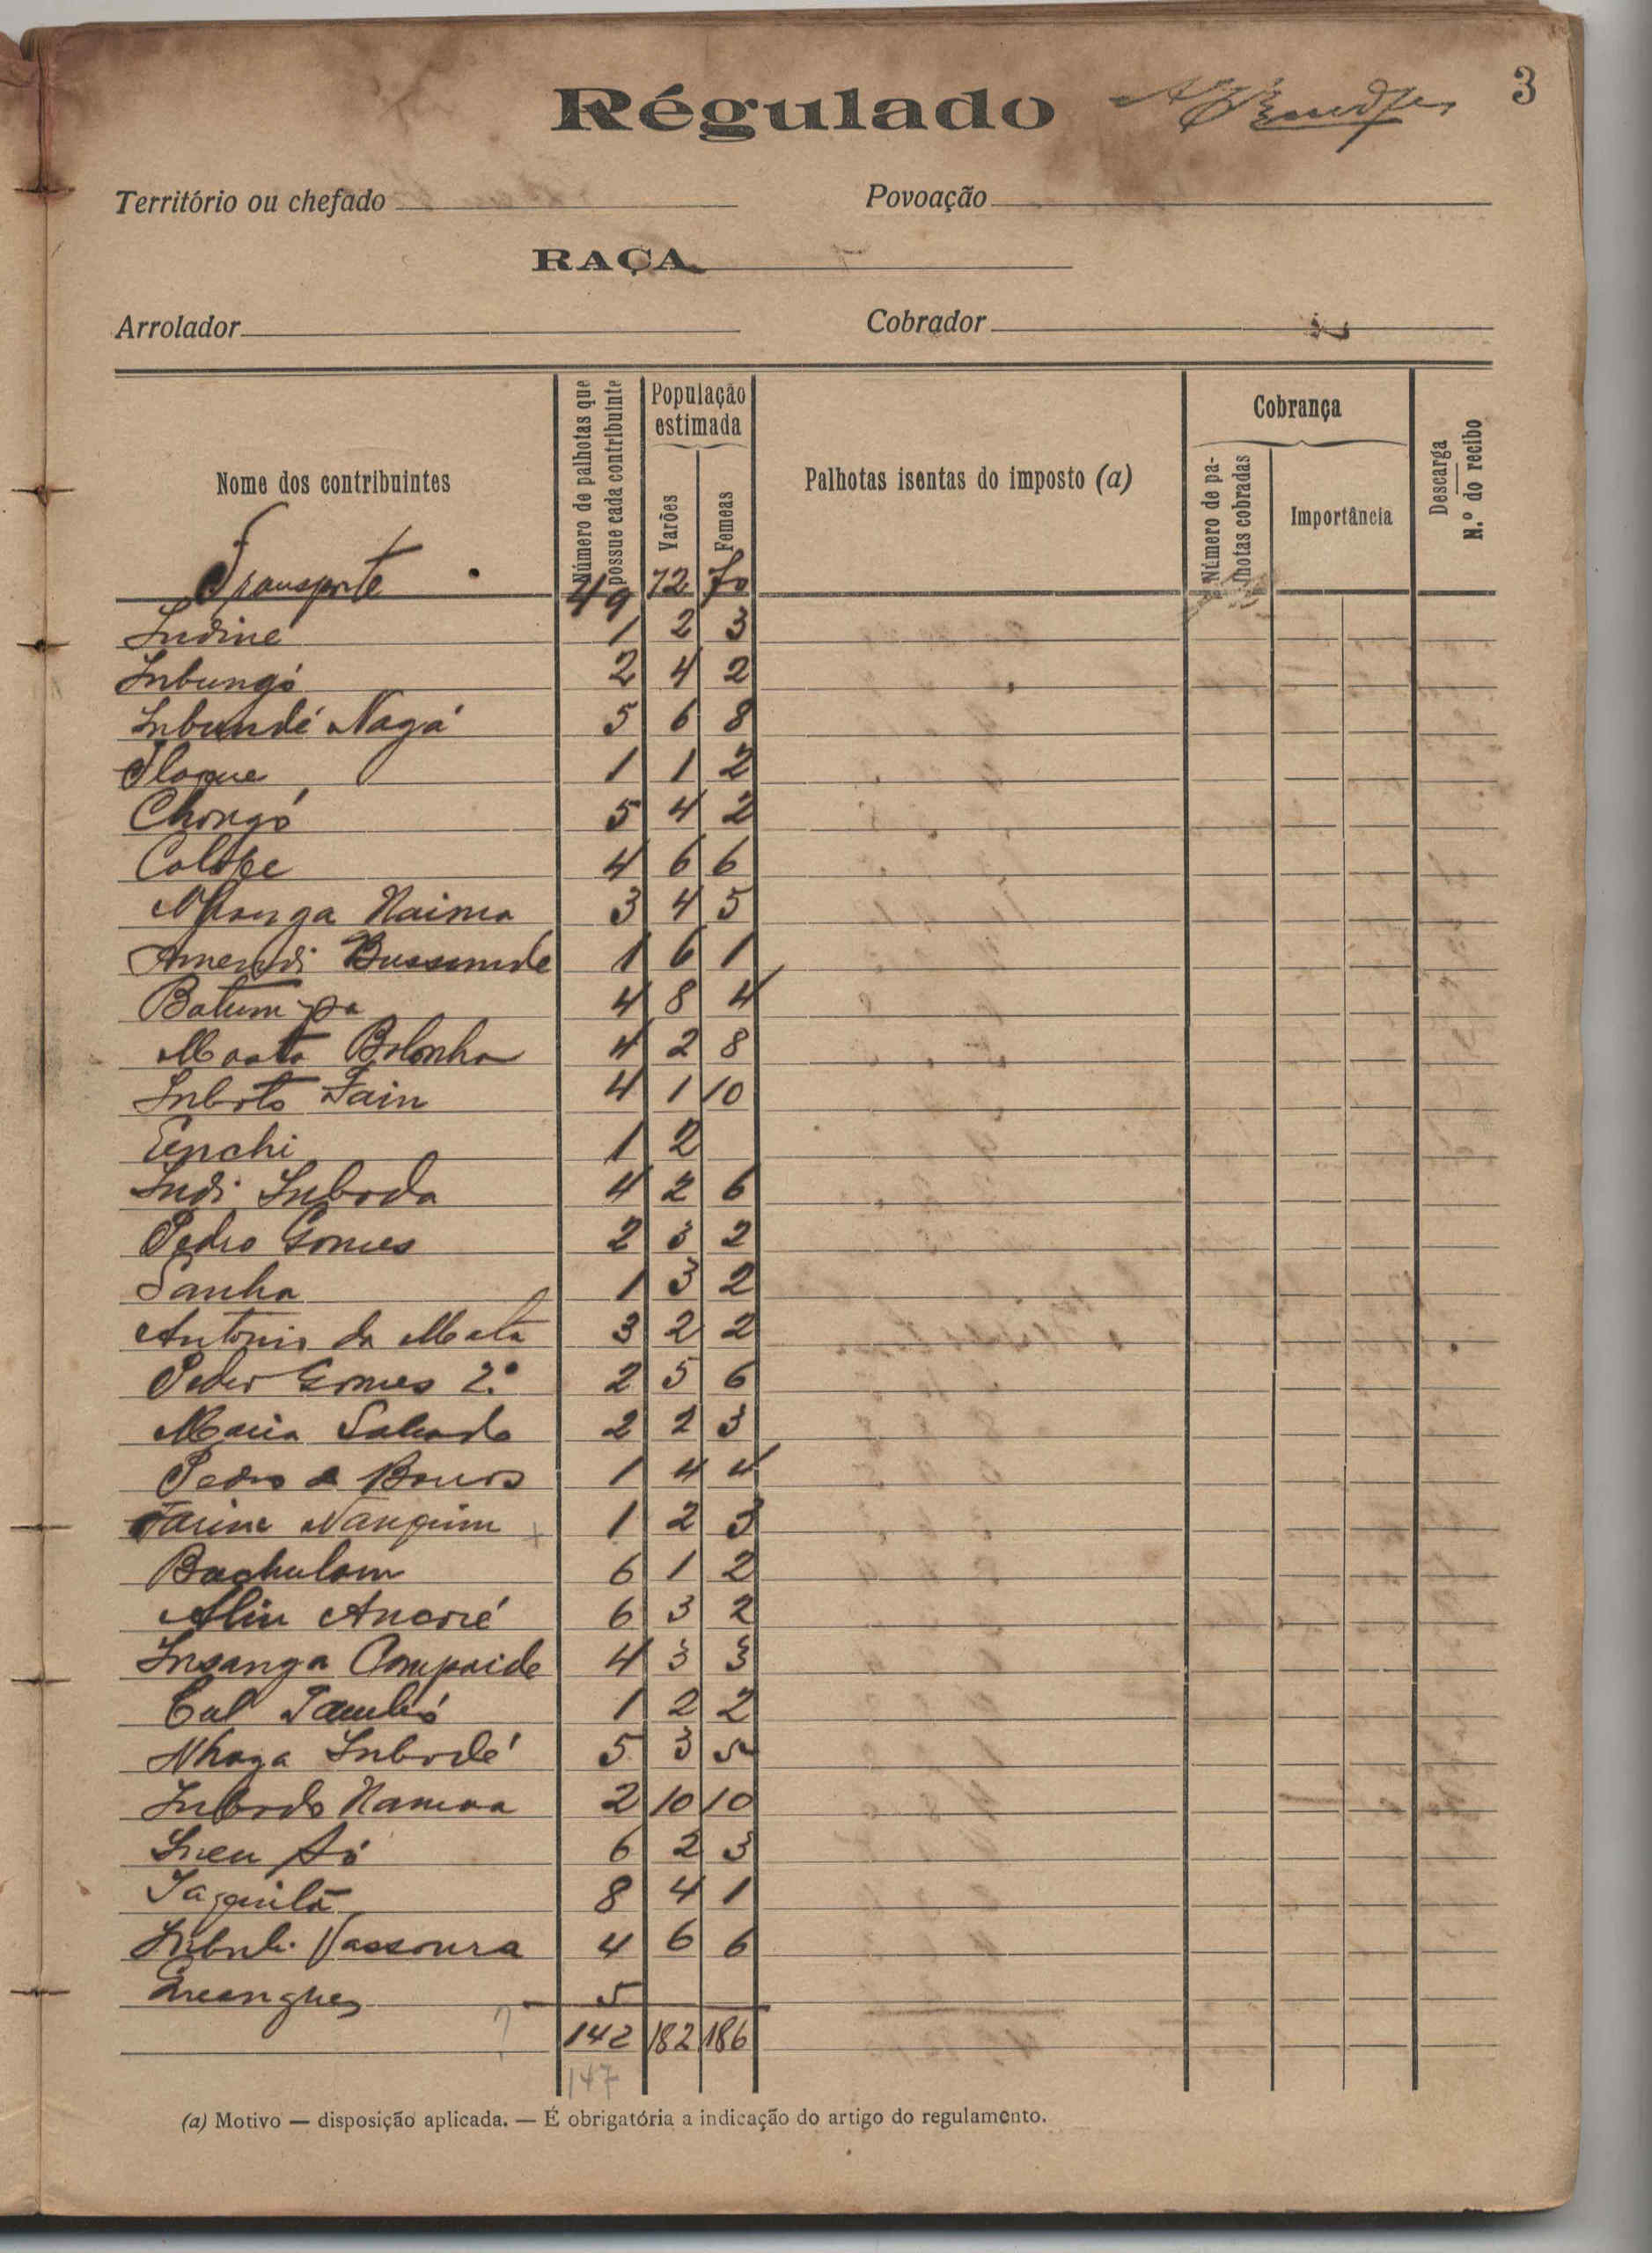 3
Régulado
Território ou chefado Povoação
RAÇA
Arrolador Cobrador
Nome dos contribuintes Número de palhotas que possue cada contribuinte População estimada Varões Femeas Palhotas isentas do imposto (a) Cobrança Número de palhotas cobradas Importância Descarga N.º do recibo
Transporte 49 72 70
Indiné 1 2 3
Inbungó 2 4 2
Inbundé Nagá 5 6 8
1 1 2
Chongó 5 4 2
Colope 4 6 6
Naima 3 4 5
Amendi Bussunde 1 6 1
Batum pa 4 8 4
Bolonha 4 2 8
Inboto Fain 4 1 10
1 2
Indi Inboda 4 2 6
Pedro Gomes 2 3 2
Sanha 1 3 2
Antonio da Mata 3 2 2
Pedro Gomes 2.º 2 5 6
Maria 2 2 3
Pedro 1 4 4
Nanquim 1 2 3
Bachulam 6 1 2
6 3 2
Insanga 4 3 3
1 2 2
Nhaga Inbodé 5 3 5
Inbodo 2 10 10
6 2 3
8 4 1
Vassoura 4 6 6
5
142 182 186
147
(a) Motivo — disposição aplicada. — É obrigatória a indicação do artigo do regulamento.